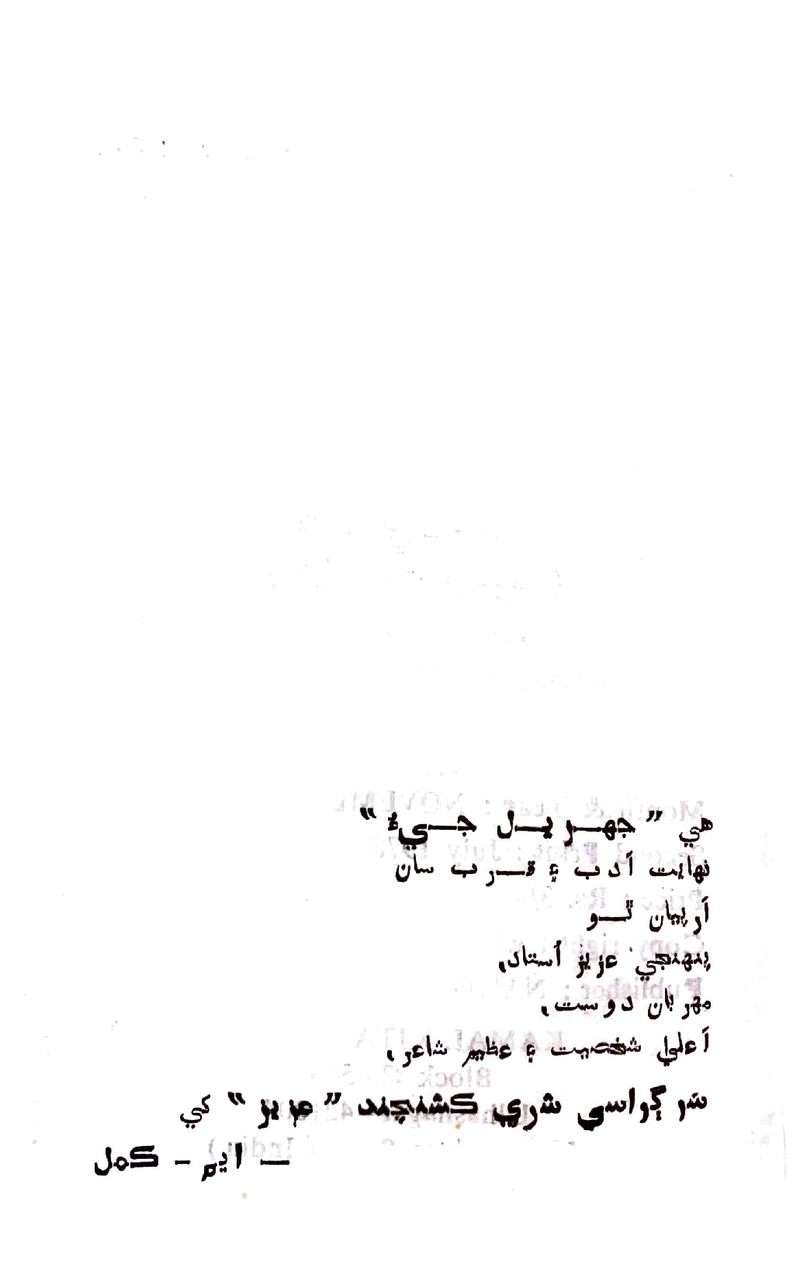 هي ”جهريل جيءُ“
نهايت اَدب ۽ قرب سان
اَرپيان ٿو
پنهنجي عزيز اُستاد،
مهربان دوست،
اَعليٰ شخصيت ۽ عظيم شاعر،
سورگواسي شري ڪشنچند ”عزيز“ کي
— ايم - ڪمل